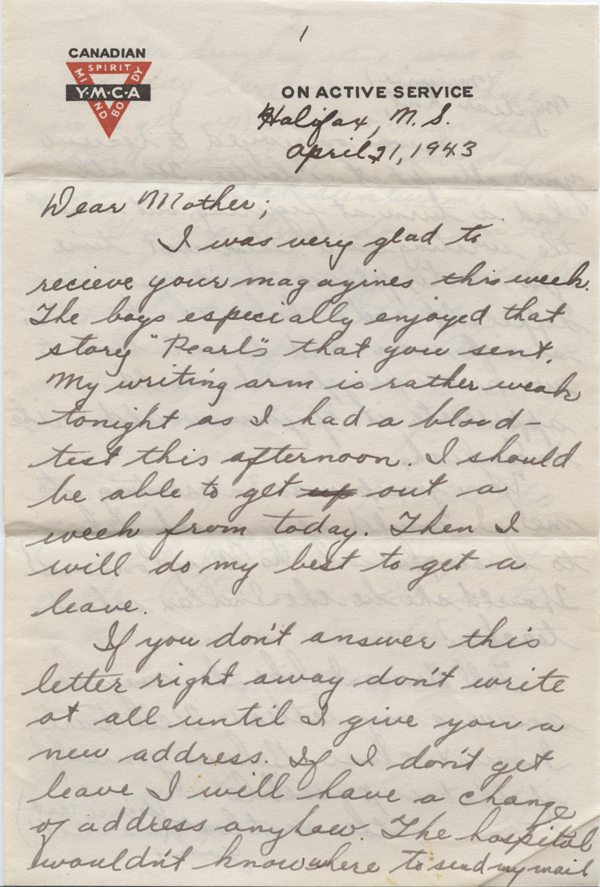 1
CANADIAN
SPIRIT
MIND
BODY
Y·M·C·A
ON ACTIVE SERVICE
Halifax, N.S.
April 21, 1943
Dear Mother;
I was very glad to
recieve your magazines this week.
The boys especially enjoyed that
story "Pearl"s that you sent.
My writing arm is rather weak
tonight as I had a blood-
test this afternoon. I should
be able to get up out a
week from today. Then I
will do my best to get a
leave.
If you don't answer this
letter right away don't write
at all until I give you a
new address. If I don't get
leave I will have a change
of address anyhow. The hospital
wouldn't know where to send my mail